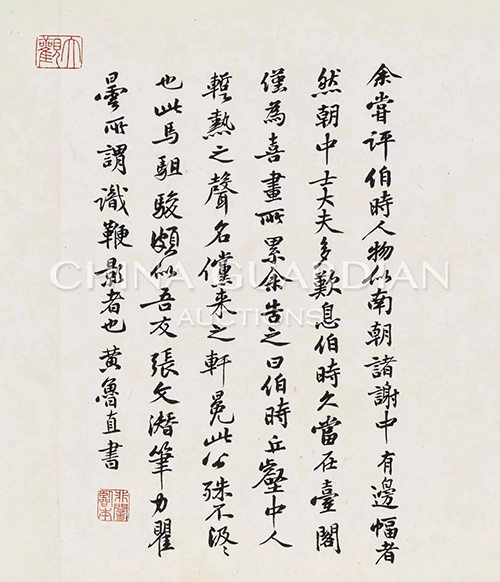 大觀
余嘗評伯時人物似南朝諸謝中有邊幅者
然朝中士大夫多歎息伯時久當在臺閣
僅為喜畫所累余告之曰伯時丘壑中人
暫熱之聲名儻来之軒冕此公殊不汲〻
也此馬駔駿頗似吾友張文潛筆力瞿
曇所謂識鞭影者也 黃魯直書
CHINA GUARDIAN
AUCTIONS